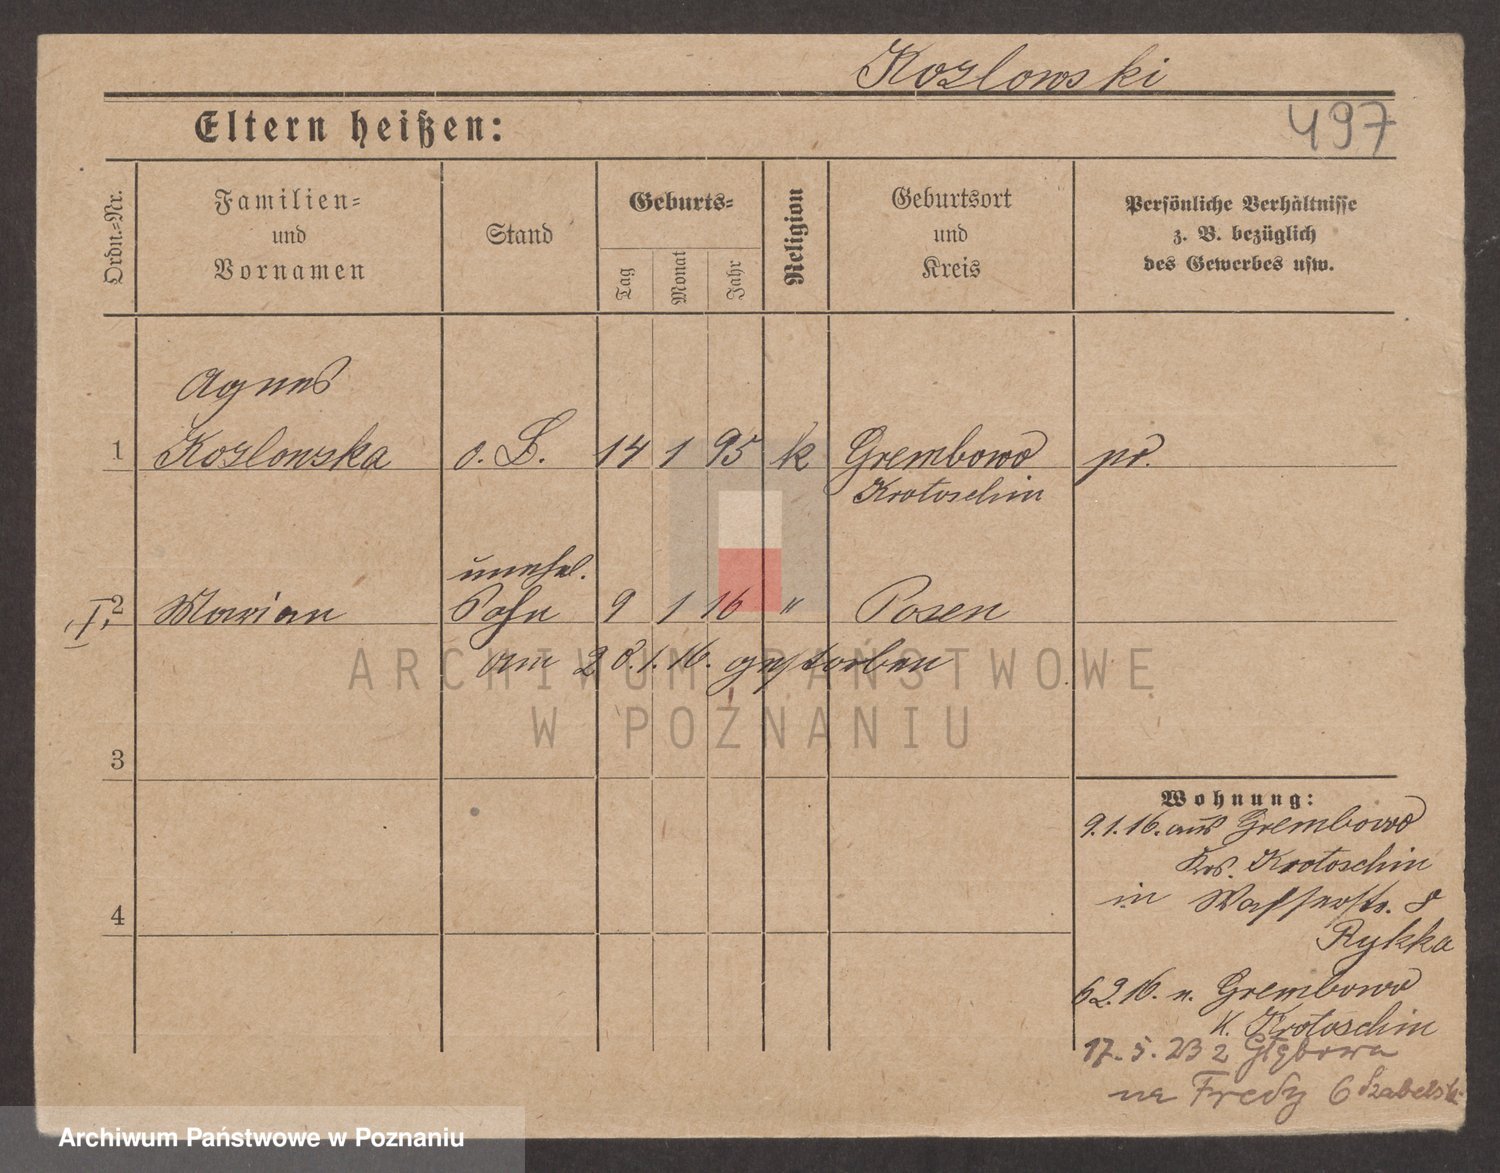 Kozlowski
Eltern heißen:
497
Ordn.-Nr.
Familien-
und
Vornamen
Stand
Geburts-
Tag
Monat
Jahr
Religion
Geburtsort
und
Kreis
Persönliche Verhältnisse
z. B. bezüglich
des Gewerbes usw.
Agnes
1 Kozlowska o. B. 14 1 95 k Grembowo pr.
Krotoschin
unehel.
I, 2 Marian Sohn 9 1 16 " Posen
am 28.1.16. gestorben
ARCHIWUM PAŃSTWOWE
W POZNANIU
3
Wohnung:
9.1.16. aus Grembowo
Krs. Krotoschin
4
in Wasserstr. 8
Rykka
6.2.16. n. Grembowo
K. Krotoschin
17.5.23 z Głębowa
na Fredry 6 Szabelski
Archiwum Państwowe w Poznaniu